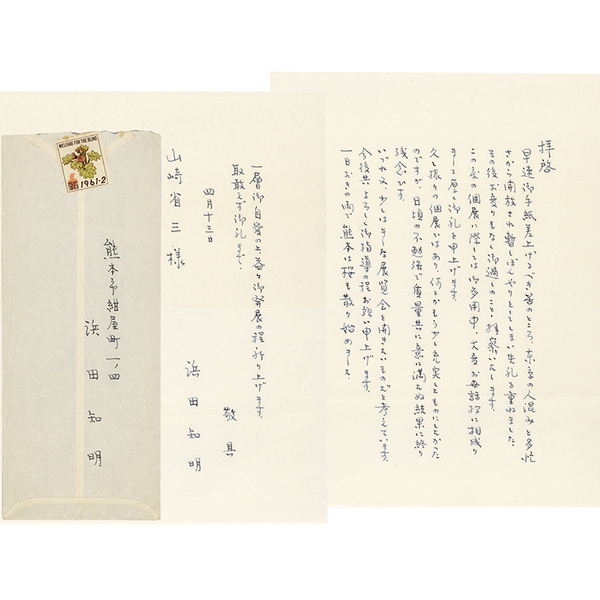 拝啓
早速御手紙差上げるべき筈のところ、東京の人混みと多忙
さから開放され暫しぼんやりとしてしまい失礼を重ねました。
その後お変りもなく御過しのことゝ拝察いたします。
この度の個展に際しては御多用中、大変お世話様に相成り
まして厚く御礼を申上げます。
久し振りの個展ではあり、何とかもう少し充実したものにしたかった
のですが、日頃の不勉強で質量共に意に満たぬ結果に終り
残念です。
いづれ又、少しはましな展覧会を開きたいものだと考えています。
今後共よろしく御指導の程お願い申上げます。
一日おきの雨で、熊本は桜も散り始めました。
一層御自愛の上益々御発展の程祈り上げます。
取敢えず御礼まで。
敬具
四月十三日
浜田知明
山崎省三様
WELFARE FOR THE BLIND
1961・2
熊本市紺屋町一ノ四
浜田知明